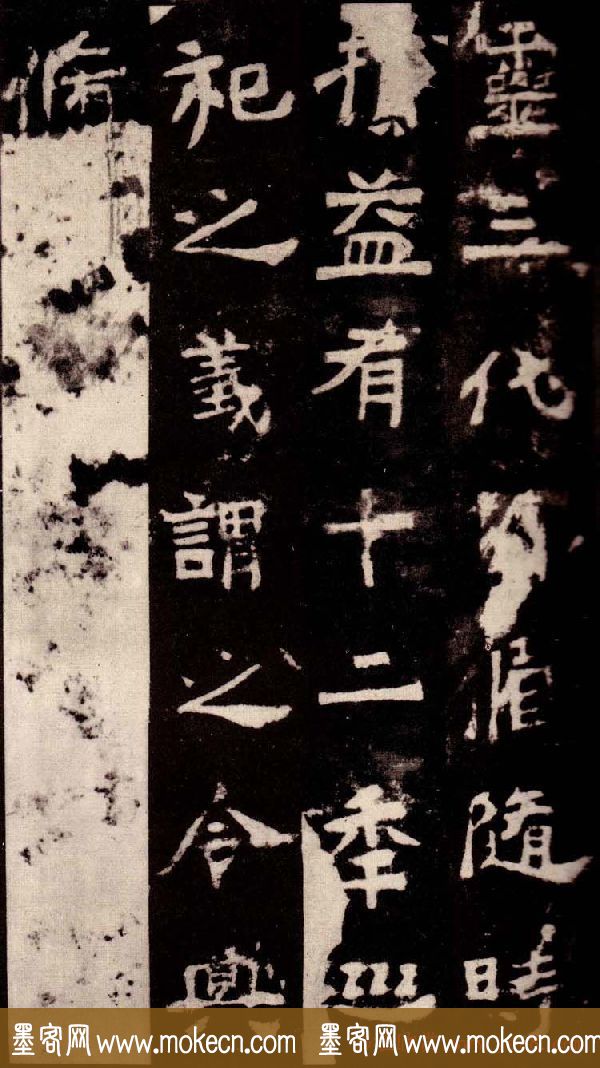 靈三代循隨時
益有十二年
祀之義謂之令
脩
墨客网 www.mokecn.com 墨客网 www.mokecn.com